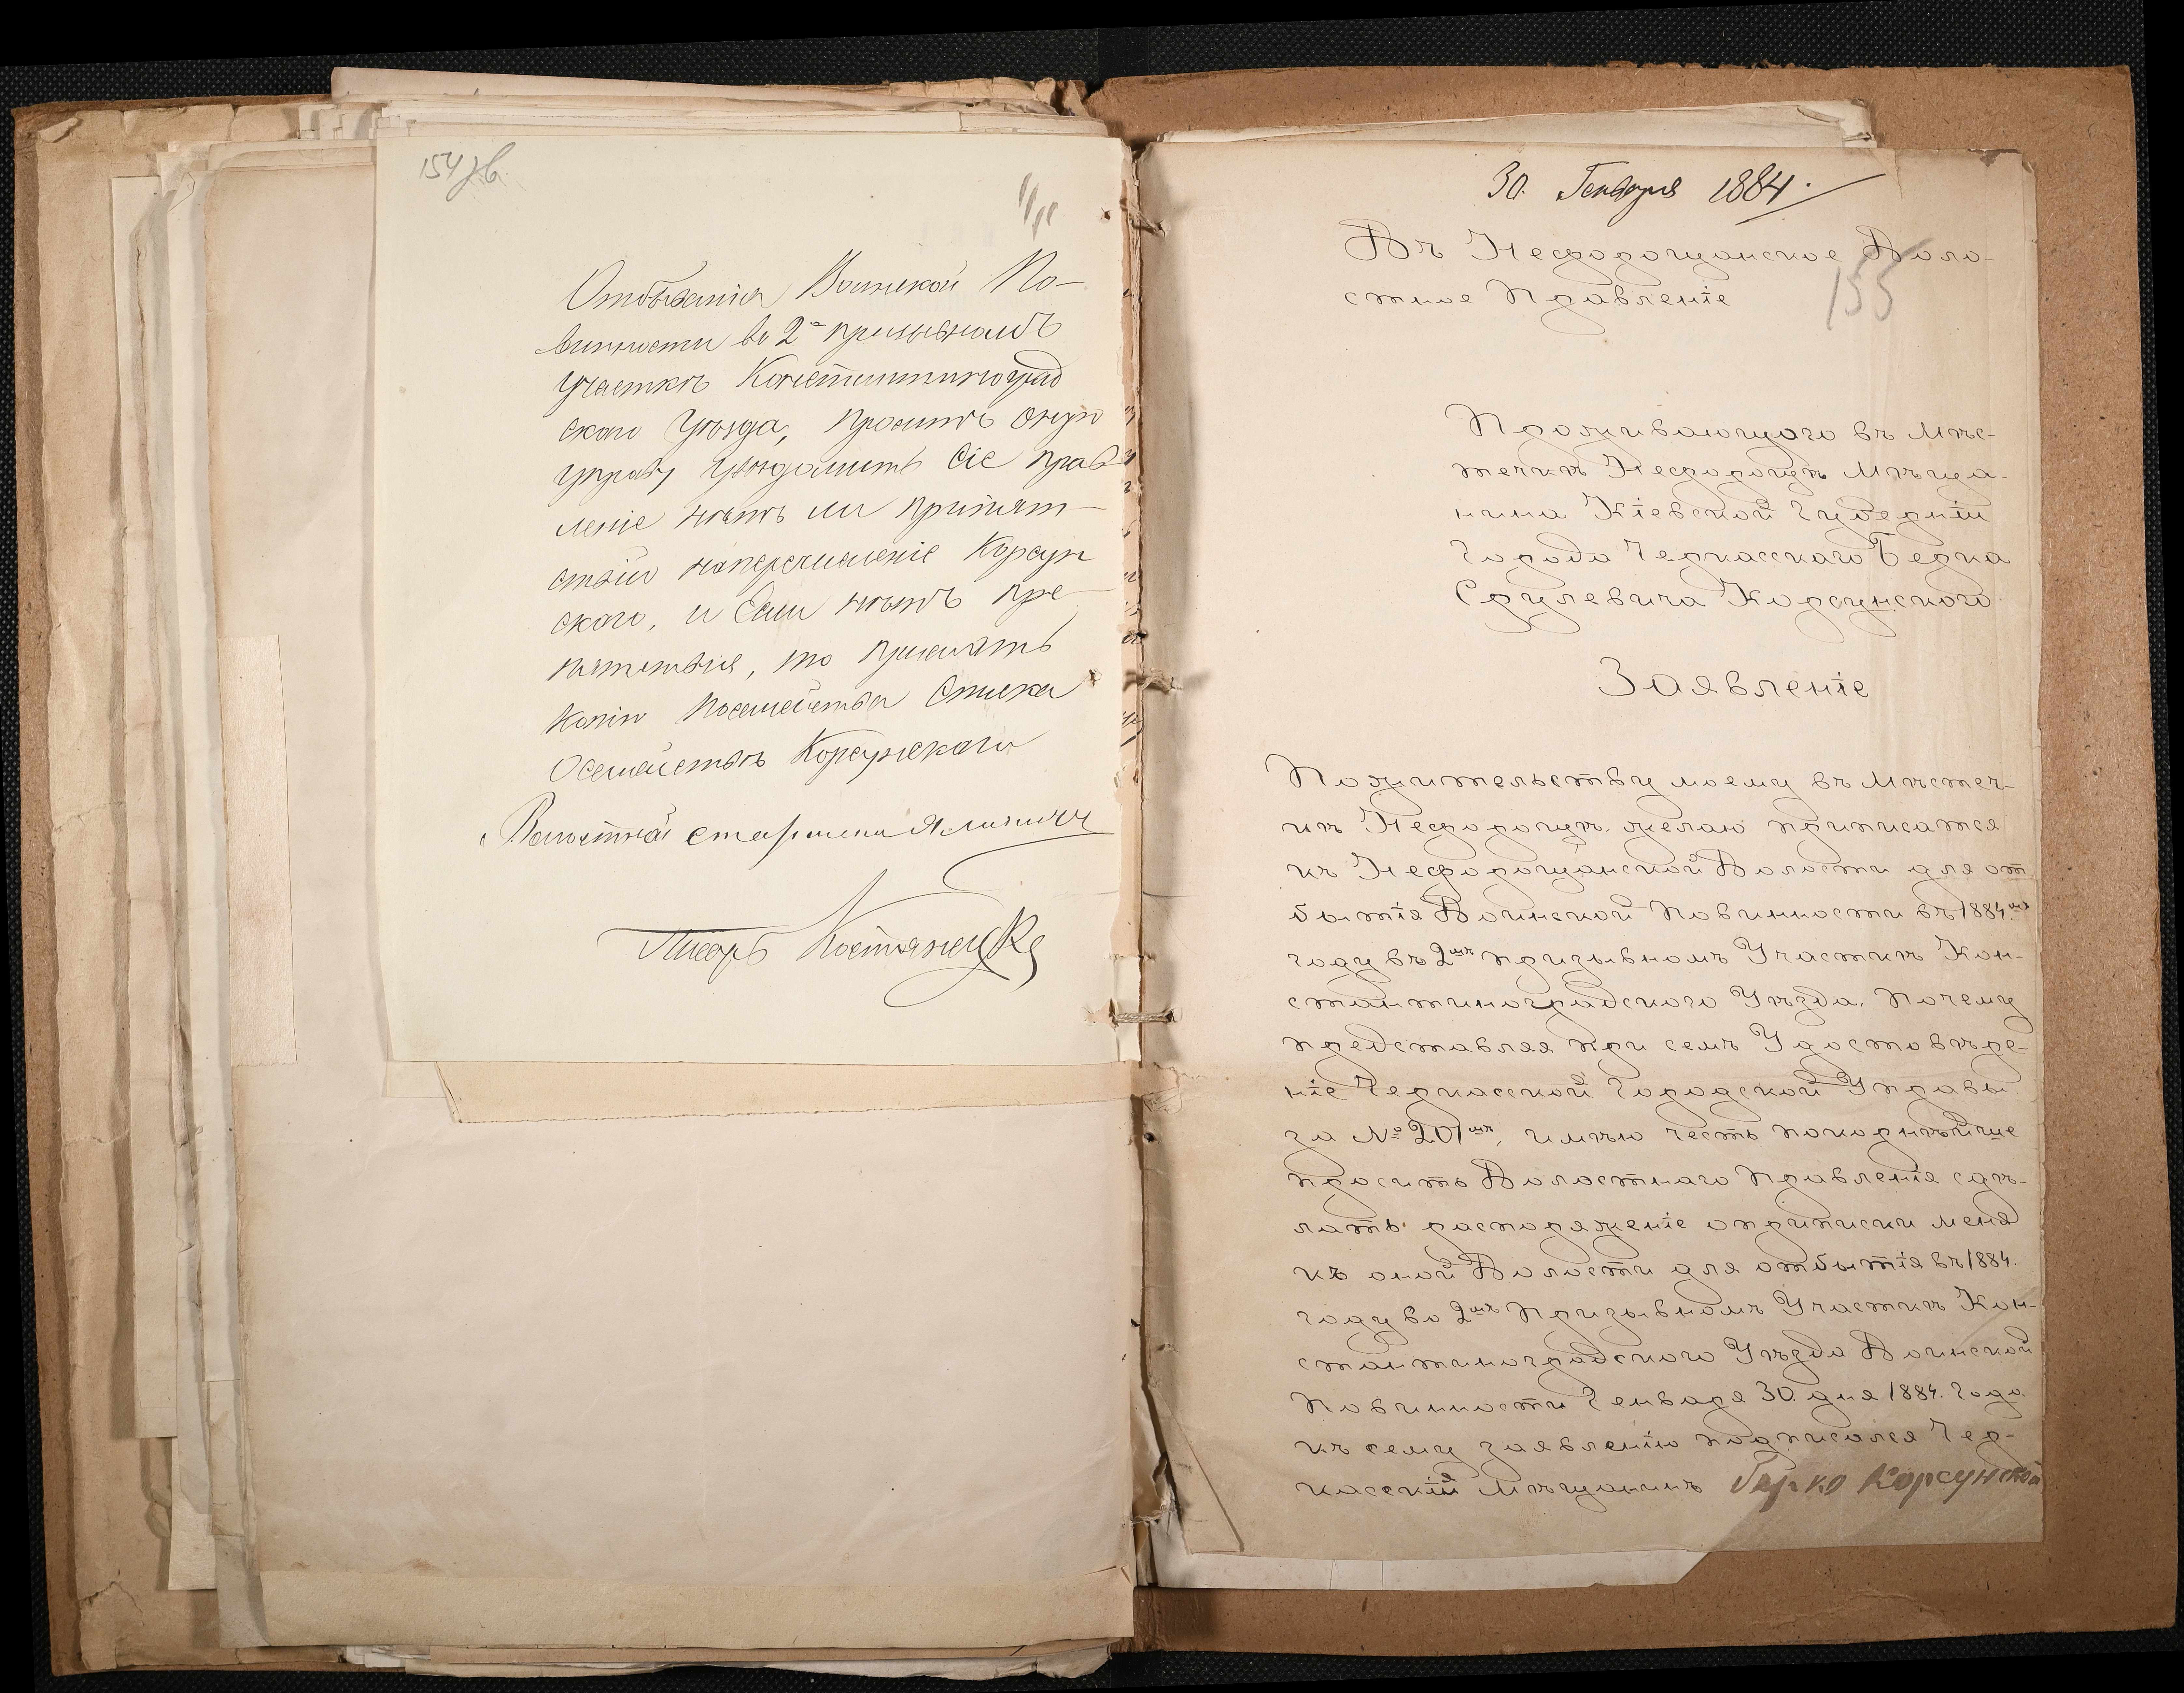 154 зв.
Отбыванія Воинской По-
винности во 2м призывномъ
Участкѣ Константиноград
скаго Уѣзда, проситъ оную
управу увѣдомить Сіе прав
леніе нѣтъ ли припят-
ствій наперечисленіе Корсун
скаго, и Если нѣтъ пре-
пятствія, то прислать
копію посемейства Списка
Осемействѣ Корсунскаго
Волостной старшина
Писарь Костянецкій
30. Генваря 1884.
Въ Нефорощанское Воло-
стное Правленіе
155
Проживающаго въ Мѣс-
течкѣ Нефорощѣ Мѣща-
нина Кіевской Губерніи
Города Черкасскаго Берка
Срулевича Корсунского
Заявленіе
Пожительству моему въ Мѣстеч-
кѣ Нефорощѣ желаю приписатся
къ Нефорощанской Волости для от
бытія Воинской Повинности въ 1884мъ
году въ 2мъ призывномъ Участкѣ Кон-
стантиноградского Уѣзда. Почему
представляя при семъ Удостовѣре-
ніе Черкасской Городской Управы
за № 201мъ, имѣю честь покорнѣйше
просить Волостнаго Правленія сдѣ-
лать распоряженіе оприписки меня
къ оной Волости для отбытія въ 1884.
году во 2мъ Призывномъ Участкѣ Кон-
стантиноградского Уѣзда Воинской
Повинности Генваря 30. дня 1884. Года.
къ сему заявленію подписался Чер-
касскій Мѣщанинъ Берко Корсунской